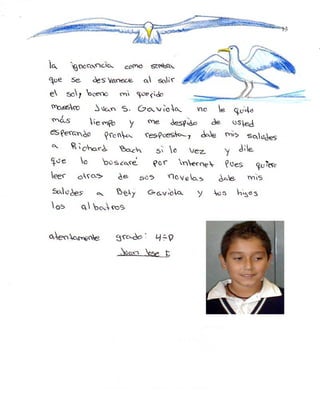 la ignorancia como sombra
que se desvanece al salir
el sol y bueno mi querido
maestro Juan S. Gaviota no le quito
más tiempo y me despido de usted
esperando pronta respuesta, dale mis saludes
a Richard Bach si lo vez y dile
que lo buscaré por internet pues quiero
leer otras de sus novelas dale mis
saludes a Bety Gaviota y tus hijos
los albatros
atentamente grado: 4-D
Juan Jose